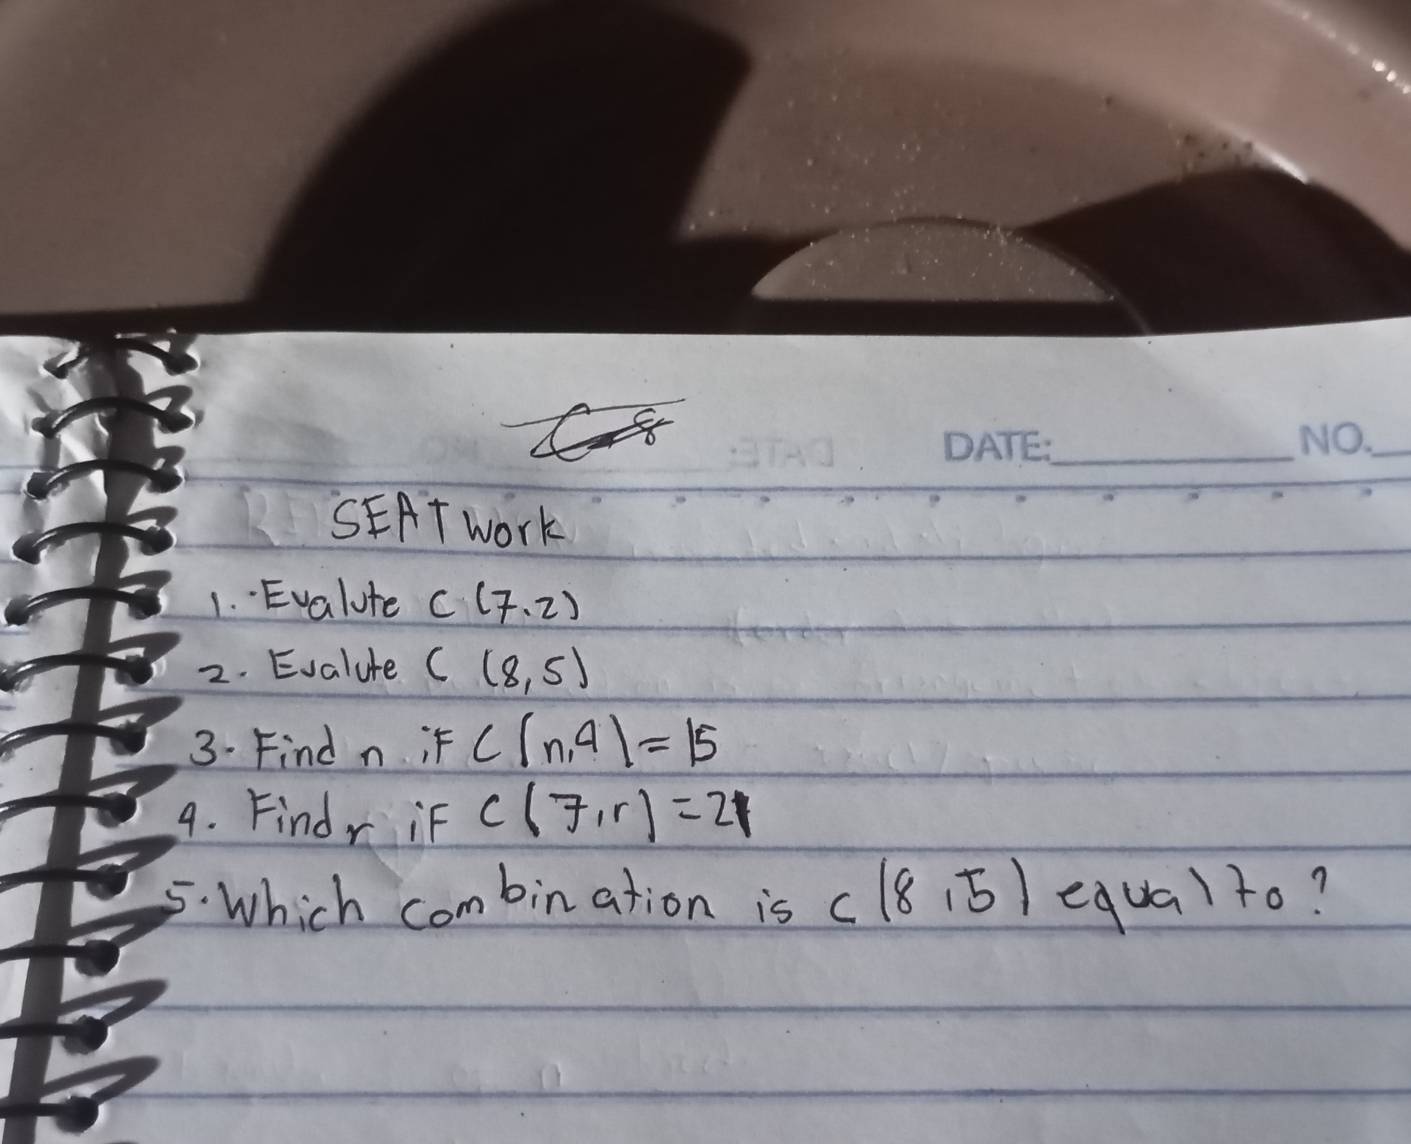 DATE: NO.
SEATWORK
1. Evalute C (7.2)
2. Evalute C (8,5)
3. Find n if C (n,4) = 15
4. Find r if C (7,r) = 21
5. Which combination is C (8,5) equal to?